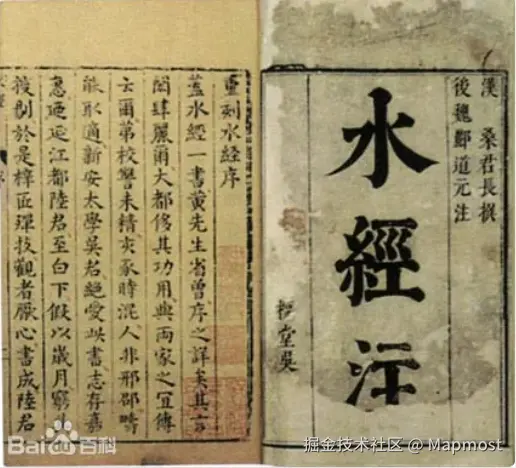 漢 桑君長撰
後魏酈道元注
水經注
堂吳
重刻水經序
蓋水經一書黃先生省曾序之詳矣其言
閎肆麗爾大都侈其功用與兩家之宜傳
云爾第校讐未精亥豕時混人非邢邵疇
能取適新安太學吳君絕愛此書志存嘉
惠迺延江都陸君至白下假以歲月窮
被剞於是梓匠殫技觀者厭心書成陸君
Bai百科
掘金技术社区 @ Mapmost